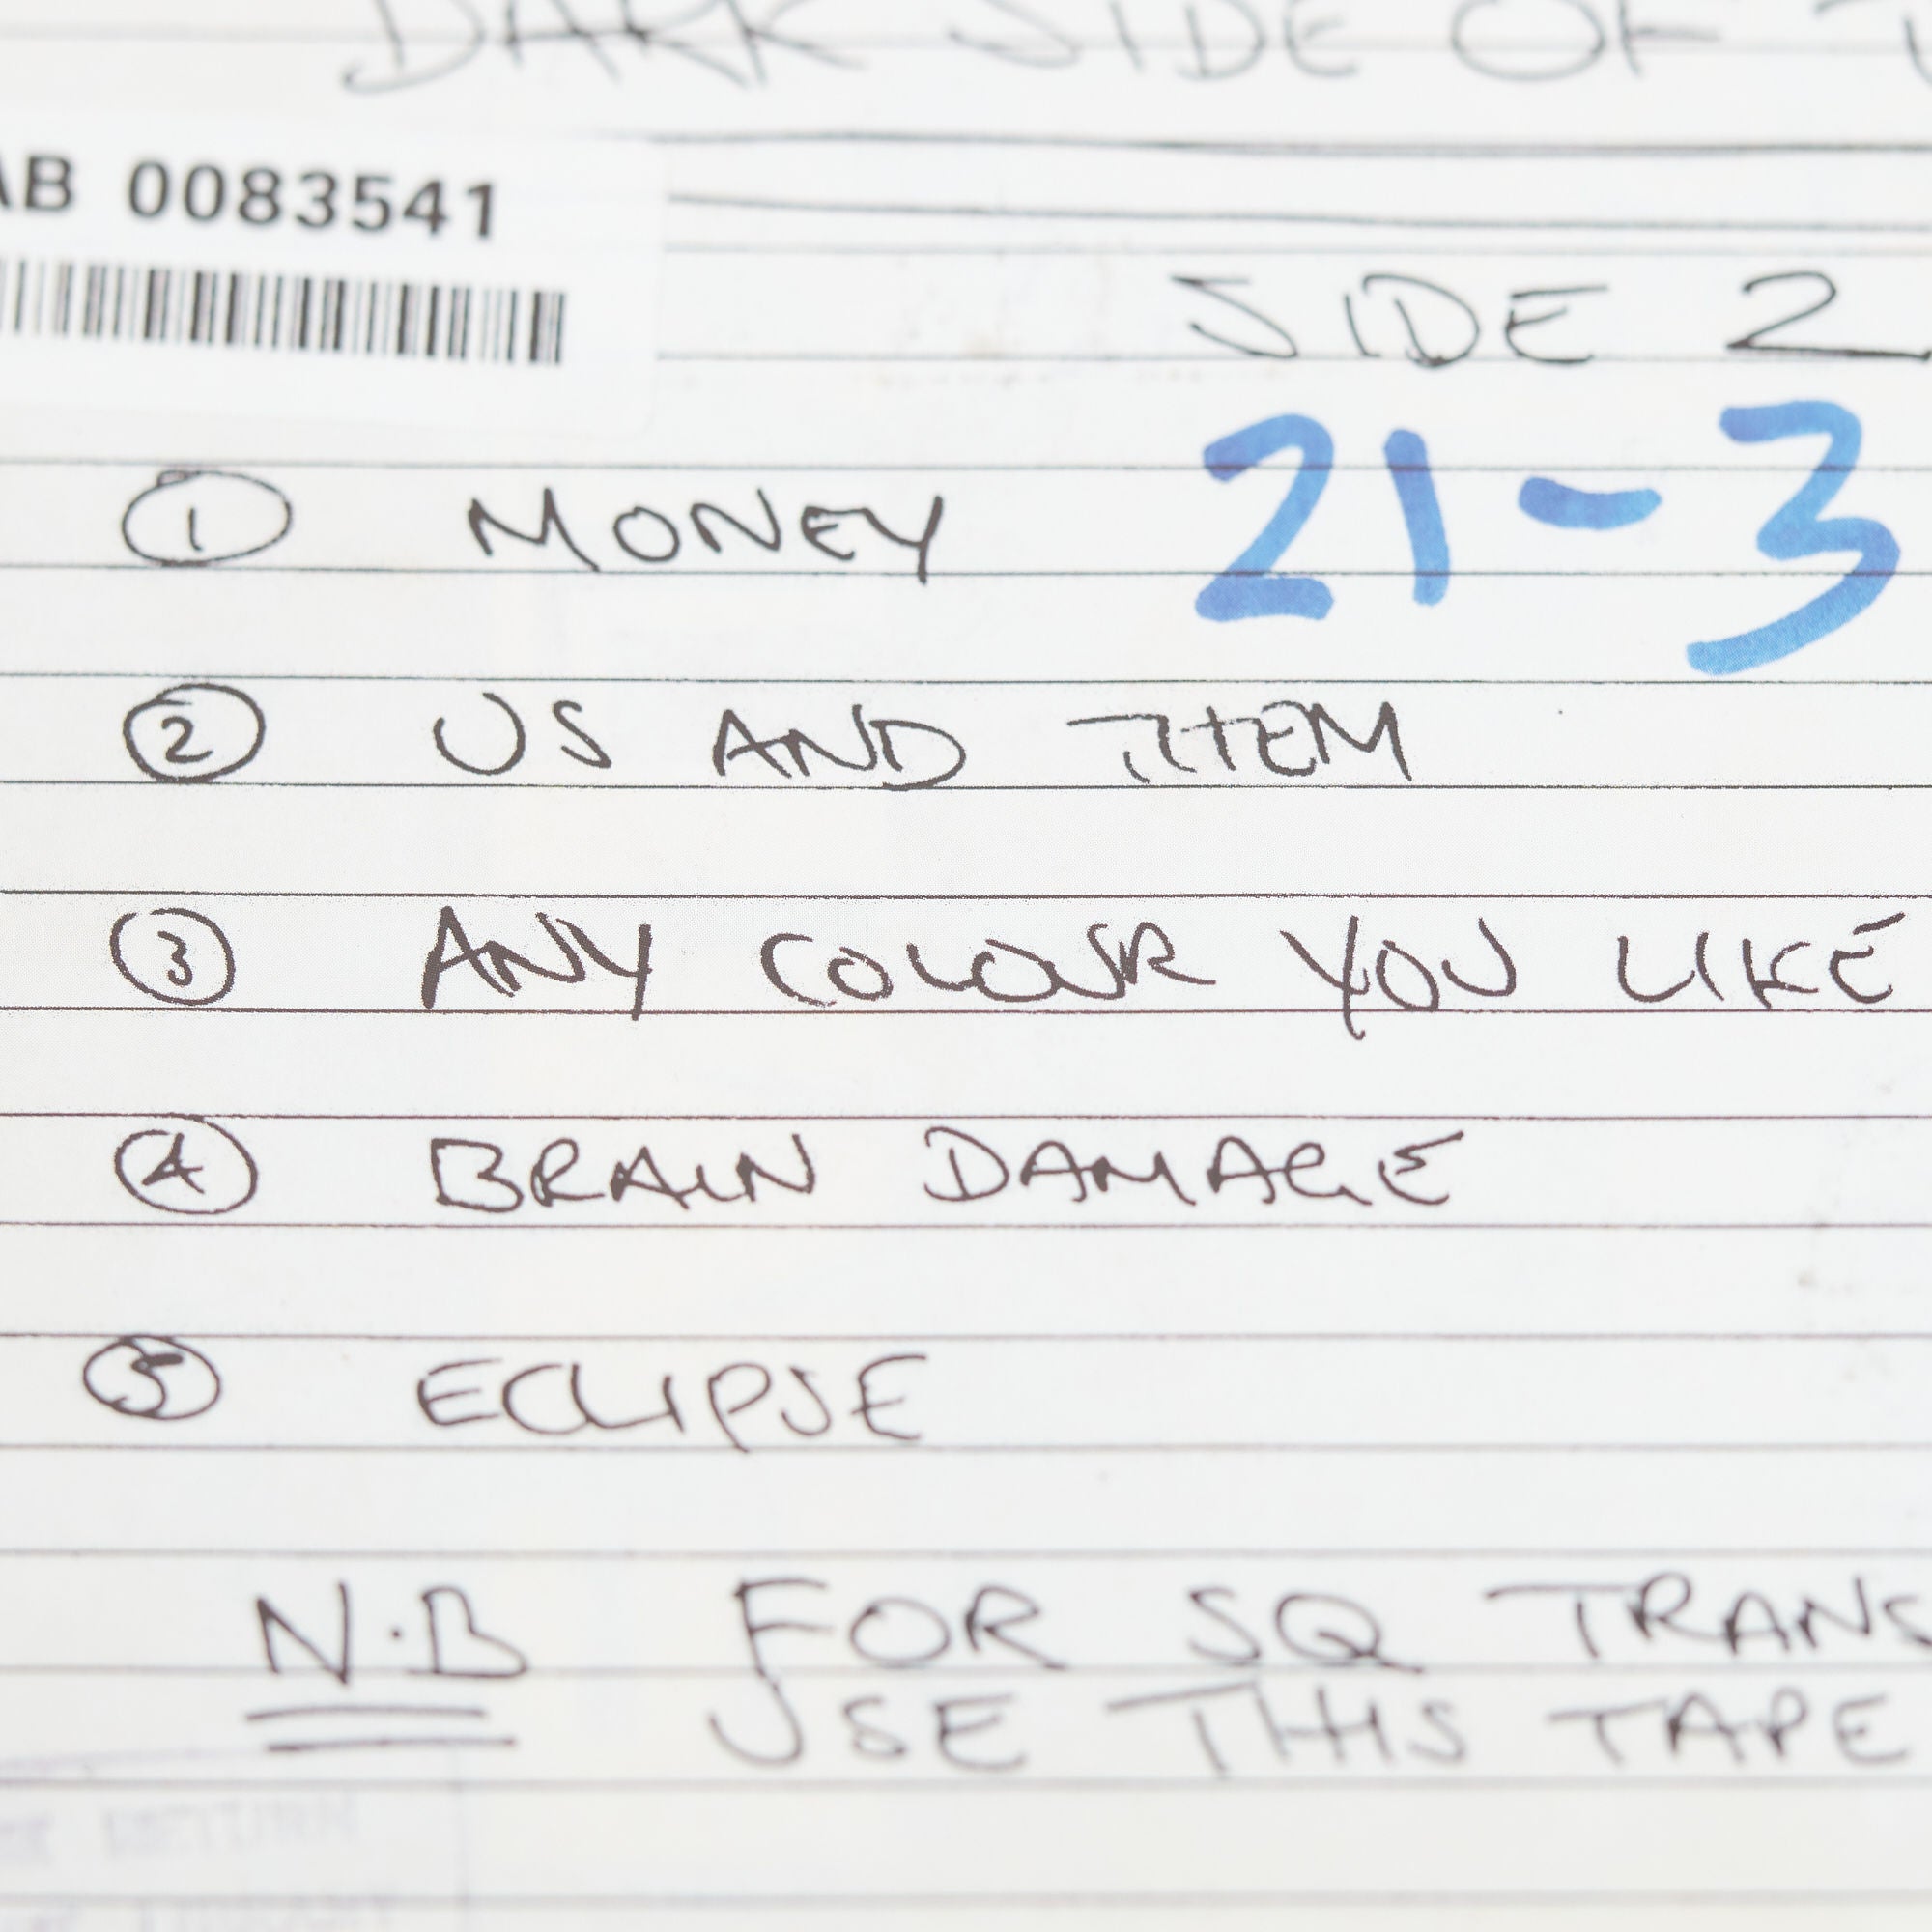 DARK SIDE OF
AB 0083541
SIDE 2
21-3
① MONEY
② US AND THEM
③ ANY COLOUR YOU LIKE
④ BRAIN DAMAGE
⑤ ECLIPSE
N.B FOR SQ TRANS
USE THIS TAPE
RETURN